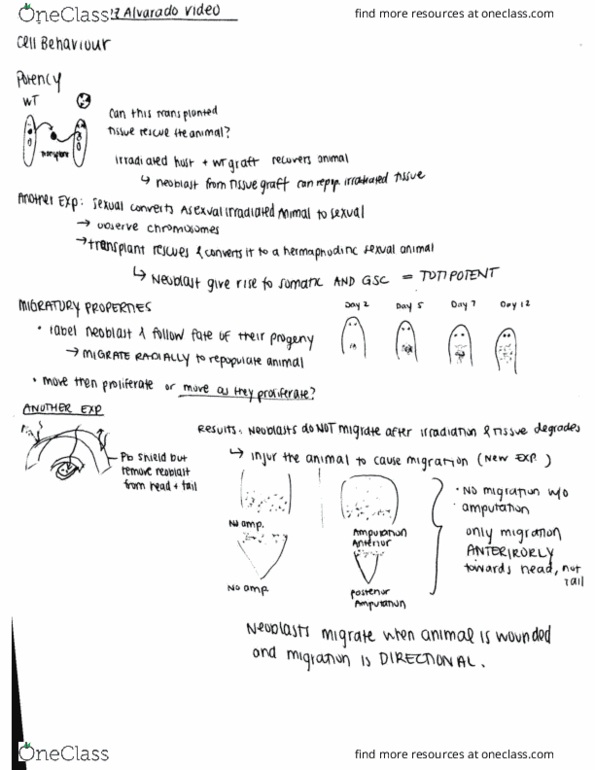 OneClass
find more resources at oneclass.com
Alvarado Video
Cell Behaviour
Potency
WT
Can this transplanted
tissue rescue the animal?
transplant
irradiated host + WT graft recovers animal
↳ neoblast from tissue graft can repop. irradiated tissue
Another Exp: Sexual converts Asexual irradiated Animal to sexual
→ observe chromosomes
→ transplant rescues & converts it to a hermaphroditic sexual animal
↳ Neoblast give rise to somatic AND GSC = TOTIPOTENT
MIGRATORY PROPERTIES
Day 2 Day 5 Day 7 Day 12
• label neoblast & follow fate of their progeny
→ MIGRATE RADIALLY to repopulate animal
• move then proliferate or move as they proliferate?
ANOTHER EXP
Results: Neoblasts do NOT migrate after irradiation & tissue degrades
Pb shield but
remove neoblast
from head + tail
↳ injur the animal to cause migration (New Exp.)
No amp.
Amputation
Anterior
No amp
Posterior
Amputation
• No migration w/o
amputation
only migration
ANTERIRORLY
towards head, not
tail
Neoblasts migrate when animal is wounded
and migration is DIRECTIONAL.
OneClass
find more resources at oneclass.com